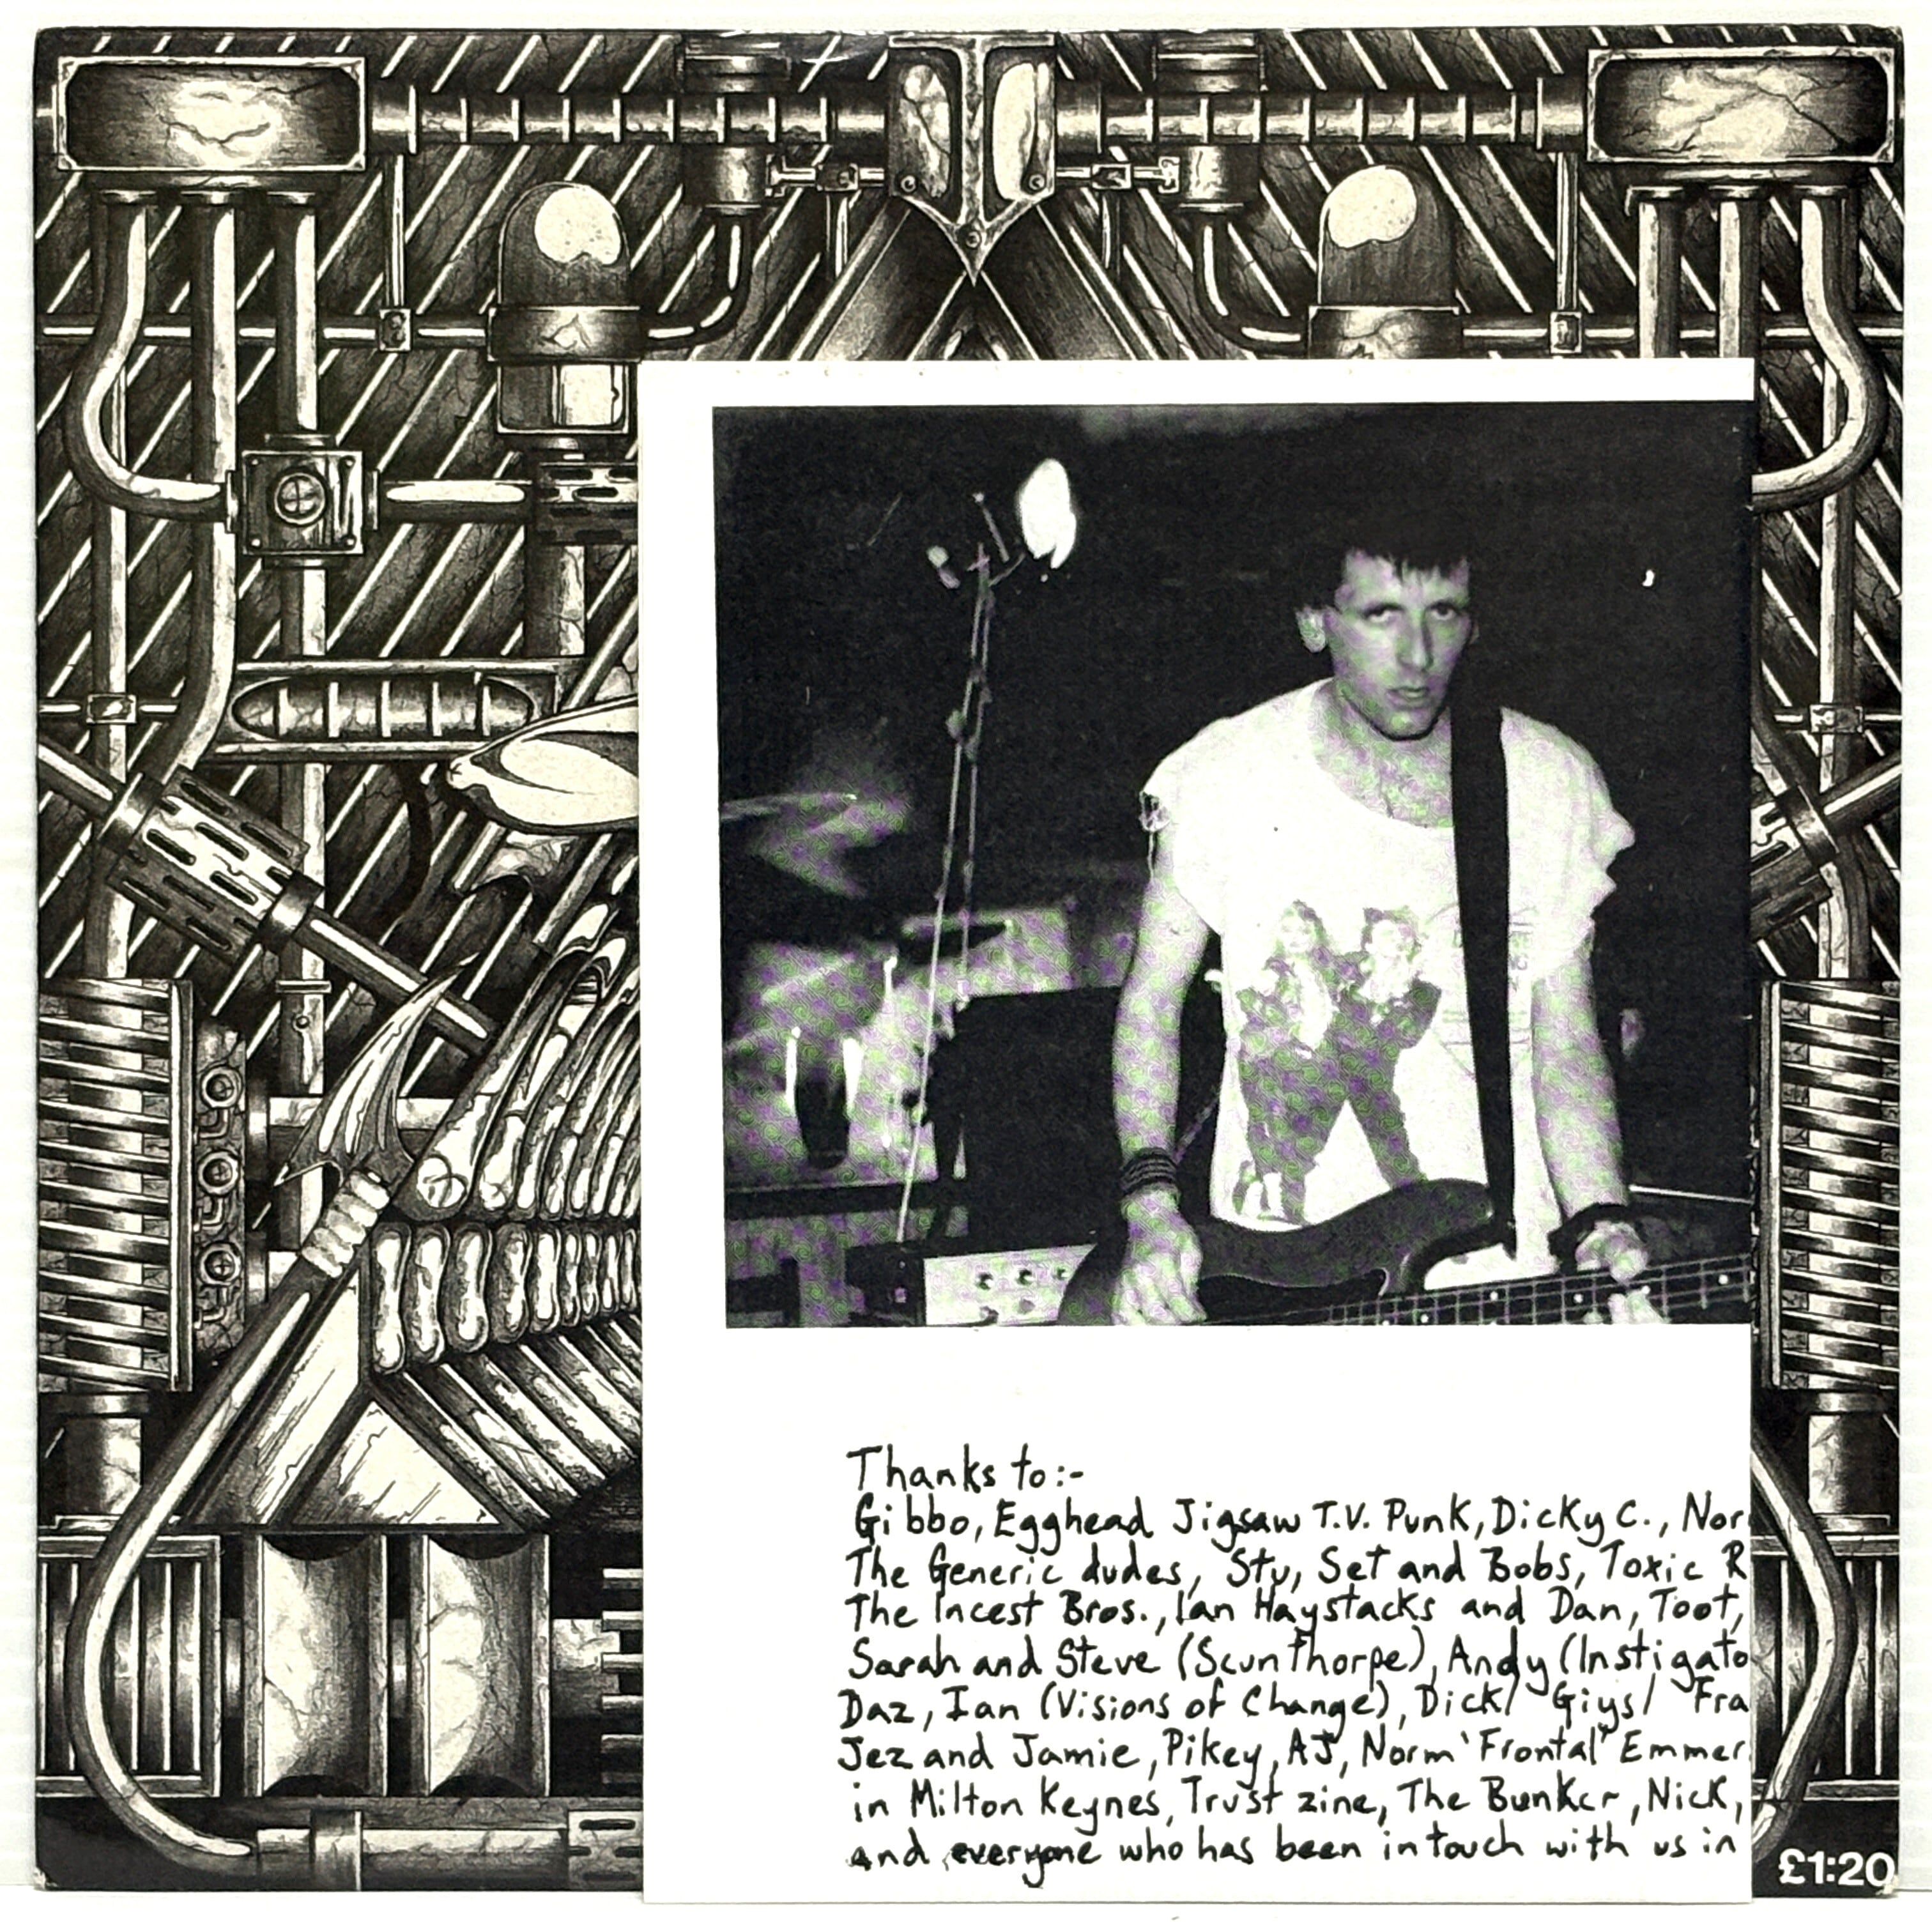 Thanks to:-
Gibbo, Egghead Jigsaw T.V. Punk, Dicky C., Nor
The Generic dudes, Stu, Set and Bobs, Toxic R
The Incest Bros., Ian Haystacks and Dan, Toot,
Sarah and Steve (Scunthorpe), Andy (Instigato
Daz, Ian (Visions of Change), Dick/ Giys/ Fra
Jez and Jamie, Pikey, AJ, Norm 'Frontal' Emmer
in Milton Keynes, Trust zine, The Bunker, Nick,
and everyone who has been in touch with us in
£1:20